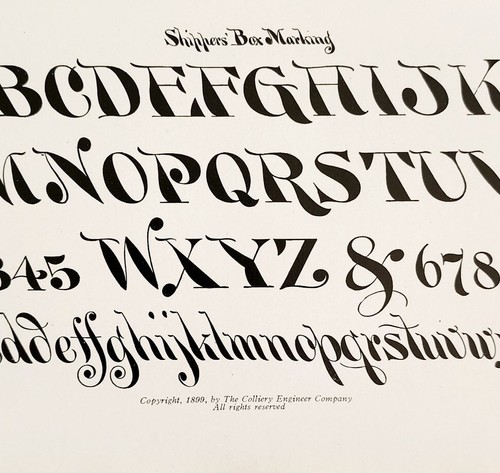 Shippers' Box Marking
BCDEFGHIJK
MNOPQRSTUV
345 WXYZ & 678
ddeffghijklmnopqrstuvw
Copyright, 1899, by The Colliery Engineer Company
All rights reserved